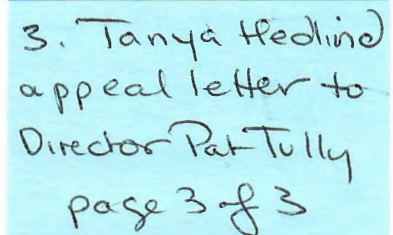 3. Tanya Hedlind
appeal letter to
Director Pat Tully
page 3 of 3